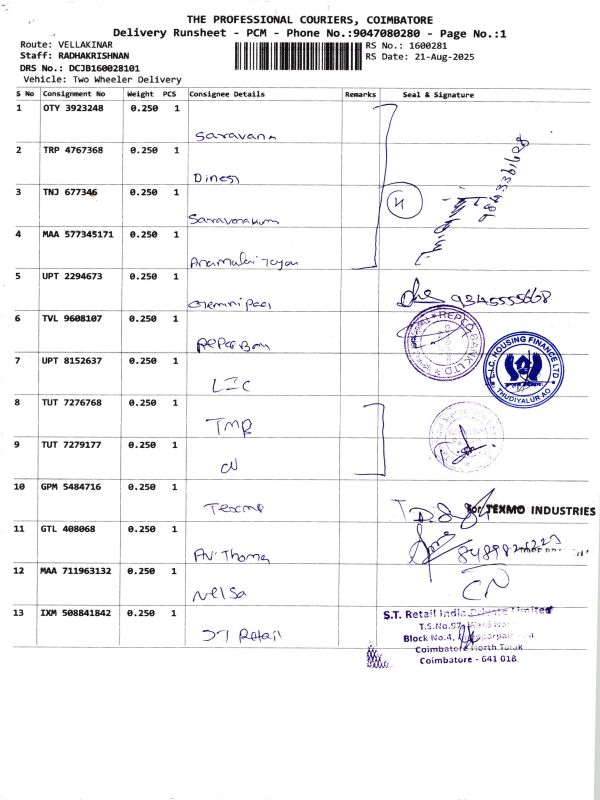 THE PROFESSIONAL COURIERS, COIMBATORE
Delivery Runsheet - PCM - Phone No.:9047080280 - Page No.:1
Route: VELLAKINAR
RS No.: 1600281
Staff: RADHAKRISHNAN
RS Date: 21-Aug-2025
DRS No.: DCJB160028101
Vehicle: Two Wheeler Delivery
S No Consignment No Weight PCS Consignee Details Remarks Seal & Signature
1 OTY 3923248 0.250 1
Saravana
2 TRP 4767368 0.250 1
Dinesh
9843381628
3 TNJ 677346 0.250 1
4
Saravanakum
4 MAA 577345171 0.250 1
5 UPT 2294673 0.250 1
9345555668
6 TVL 9608107 0.250 1
REPCO BANK LTD
Repco Bank
L.I.C. HOUSING FINANCE LTD
THUDIYALUR AO
7 UPT 8152637 0.250 1
LIC
8 TUT 7276768 0.250 1
TMR
9 TUT 7279177 0.250 1
CN
10 GPM 5484716 0.250 1
Texmo
For TEXMO INDUSTRIES
11 GTL 408068 0.250 1
AV. Thomas
12 MAA 711963132 0.250 1
Nelsa
CN
13 IXM 508841842 0.250 1
ST Retail
S.T. Retail India Private Limited
T.S.No.97,
Block No.4,
Coimbatore North Taluk
Coimbatore - 641 018